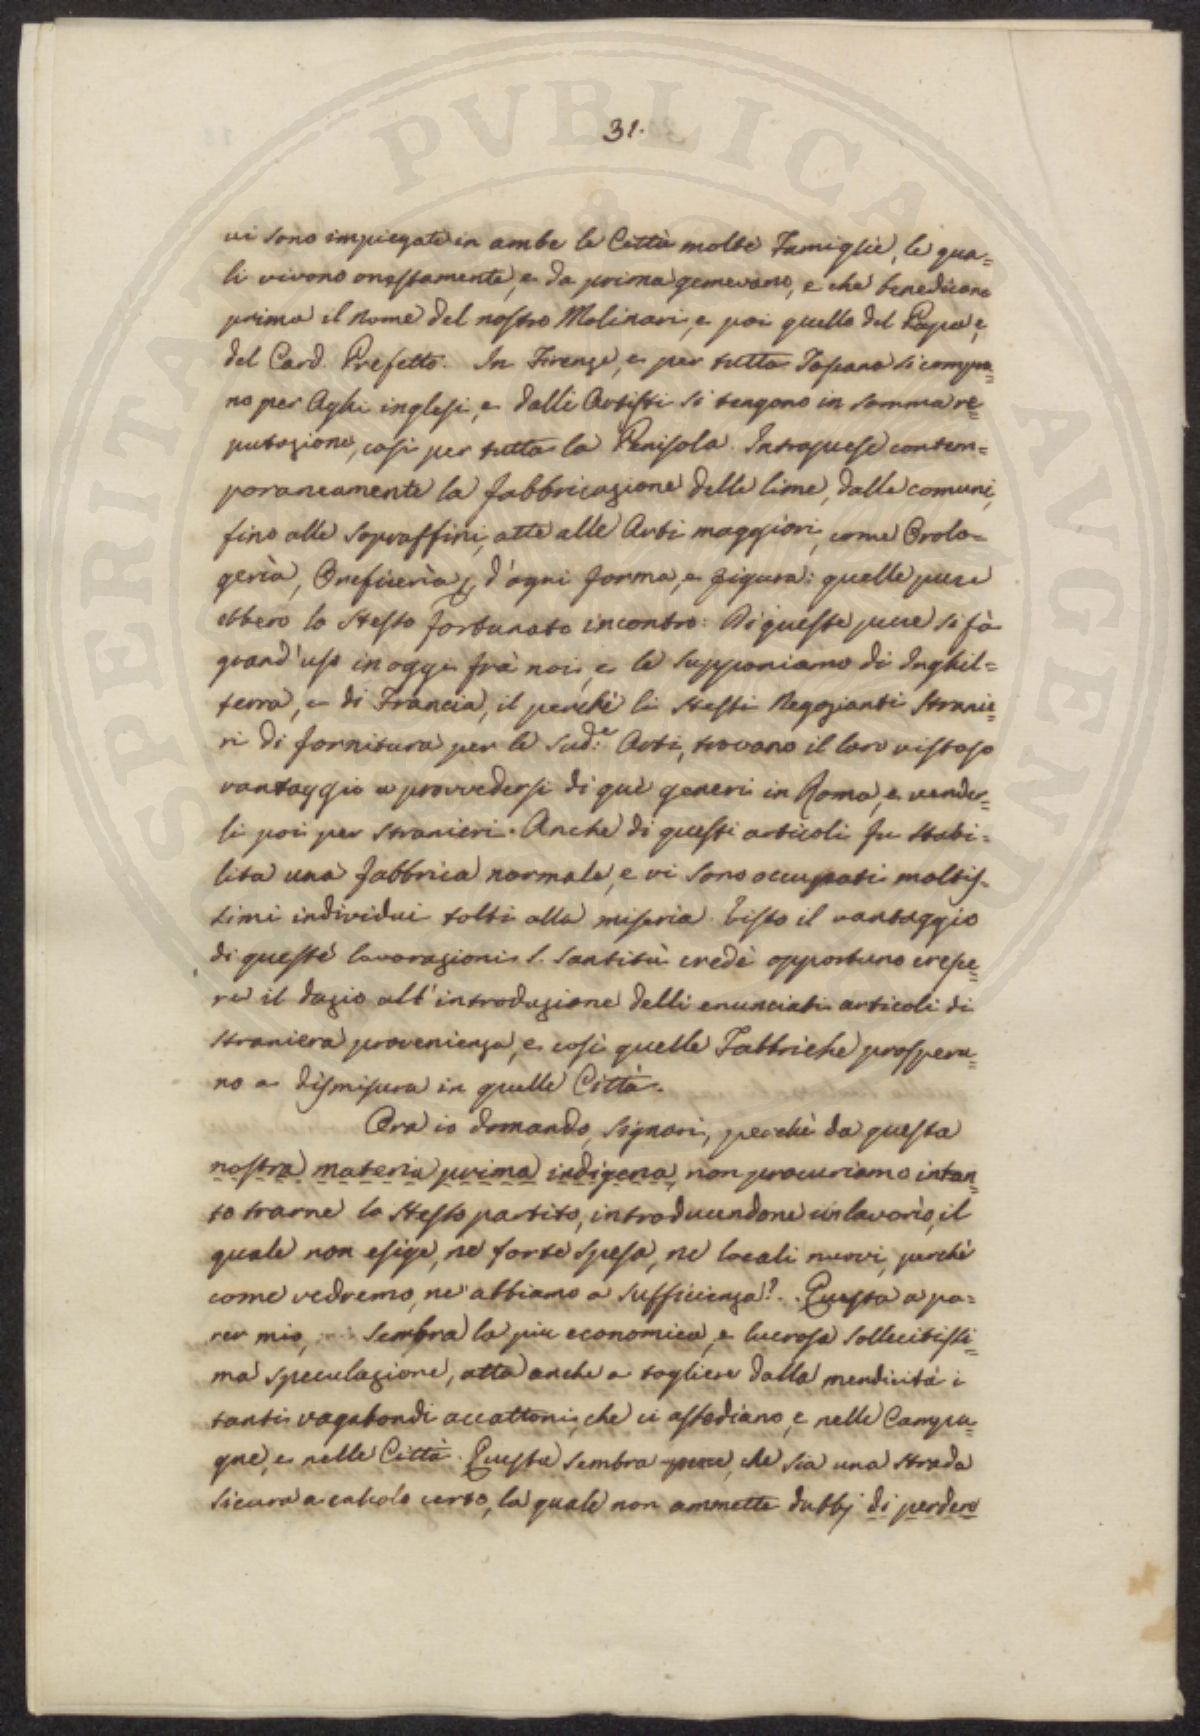 31.
vi sono impiegate in ambe le Città molte Famiglie, le qua=
li vivono onestamente, e da prima gemevano, e che benedicono
prima il nome del nostro Molinari, e poi quello del Papa, e
del Card. Prefetto. In Firenze, e per tutta Toscana si compra=
no per Aghi inglesi, e dalli Artisti si tengono in somma re=
putazione, così per tutta la Penisola. Intraprese contem=
poraneamente la fabbricazione delle lime, dalle comuni,
fino alle sopraffini, atte alle Arti maggiori, come Orolo=
gerìa, Oreficerìa, d'ogni forma, e figura: quelle pure
ebbero lo stesso fortunato incontro: Di queste pure si fà
grand'uso in oggi frà noi, e le supponiamo di Inghil=
terra, e di Francia, il perchè li stessi Negozianti stranie=
ri di fornitura per le sud.e Arti, trovano il loro vistoso
vantaggio a provvedersi di què generi in Roma, e vender=
li poi per stranieri. Anche di questi articoli fu stabi=
lita una fabbrica normale, e vi sono occupati moltis=
simi individui tolti alla miseria. Visto il vantaggio
di queste lavorazioni S. Santità credè opportuno cresce=
re il dazio all'introduzione delli enunciati articoli di
straniera provenienza, e così quelle Fabbriche prospera=
no a dismisura in quelle Città.
Ora io domando, Signori, perchè da questa
nostra materia prima indigena, non procuriamo intan=
to trarne lo stesso partito, introducendone un lavorìo, il
quale non esige, ne forte spesa, ne locali nuovi, perchè
come vedremo, ne abbiamo a sufficienza?.. Questa a pa=
rer mio, sembra la più economica, e lucrosa sollecitissi=
ma speculazione, atta anche a togliere dalla mendicità i
tanti vagabondi accattoni, che ci assediano, e nelle Campa=
gne, e nelle Città. Questa sembra pure, che sia una strada
sicura a calcolo certo, la quale non ammette dubbj di perdere